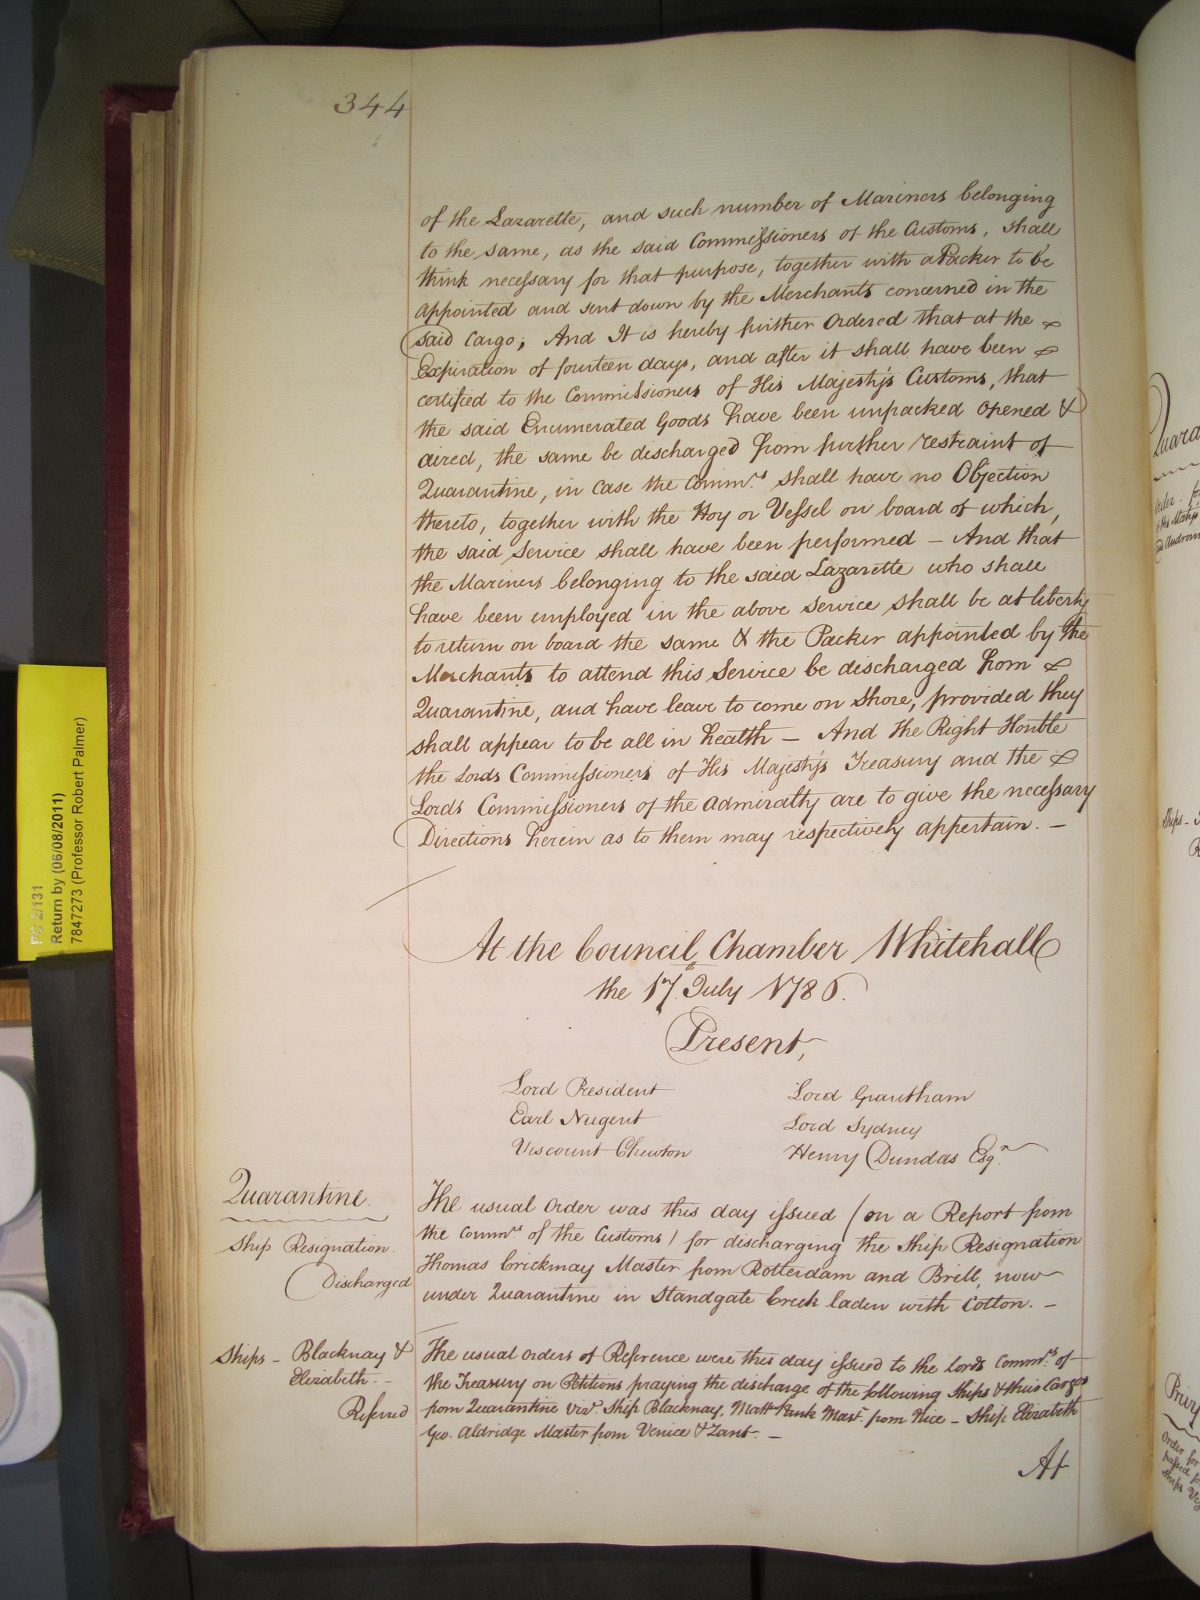 344
of the Lazarette, and such number of Mariners belonging
to the same, as the said Commissioners of the Customs, shall
think necessary for that purpose, together with a Packer to be
appointed and sent down by the Merchants concerned in the
said Cargo; And It is hereby further Ordered that at the
Expiration of fourteen days, and after it shall have been
certified to the Commissioners of His Majesty's Customs, that
the said Enumerated Goods have been unpacked opened &
aired, the same be discharged from further restraint of
Quarantine, in case the Commrs. shall have no Objection
thereto, together with the Hoy or Vessel on board of which,
the said Service shall have been performed — And that
the Mariners belonging to the said Lazarette who shall
have been employed in the above Service shall be at liberty
to return on board the same & the Packer appointed by the
Merchants to attend this Service be discharged from
Quarantine, and have leave to come on Shore, provided they
shall appear to be all in health — And the Right Honble
the Lords Commissioners of His Majesty's Treasury and the
Lords Commissioners of the Admiralty are to give the necessary
Directions herein as to them may respectively appertain. —
At the Council Chamber Whitehall
the 17th July 1786.
Present,
Lord President
Earl Nugent
Viscount Chewton
Lord Grantham
Lord Sydney
Henry Dundas Esqr.
Quarantine.
Ship Resignation.
Discharged
The usual Order was this day issued / on a Report from
the Commrs. of the Customs / for discharging the Ship Resignation
Thomas Crickmay Master from Rotterdam and Brill, now
under Quarantine in Standgate Creek laden with Cotton. —
Ships - Blacknay &
Elizabeth. -
Referred
The usual Orders of Reference were this day issued to the Lords Commrs. of
the Treasury on Petitions praying the discharge of the following Ships & their Cargos
from Quarantine vizt. Ship Blacknay, Mattw Mastr. from Nice - Ship Elizabeth
Geo. Aldridge Master from Venice & Zant. —
At
PC 2/131
Return by (06/08/2011)
7847273 (Professor Robert Palmer)